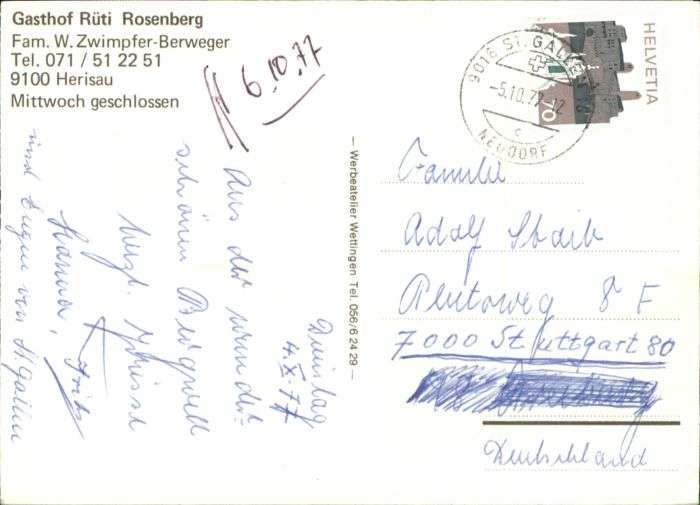 Gasthof Rüti Rosenberg
Fam. W. Zwimpfer-Berweger
Tel. 071 / 51 22 51
9100 Herisau
Mittwoch geschlossen
6.10.77
HELVETIA
70
9016 ST. GALLEN
-5.10.77-12
c
NEUDORF
Dienstag
4.X.77
Aus der wunder-
schönen Bergwelt
herzl. Grüsse
Hanna, Fritz
und Eugen von St. Gallen
— Werbeatelier Wettingen Tel. 056/6 24 29 —
Familie
Adolf Staib
Plutoweg 8 F
7000 Stuttgart 80
Deutschland